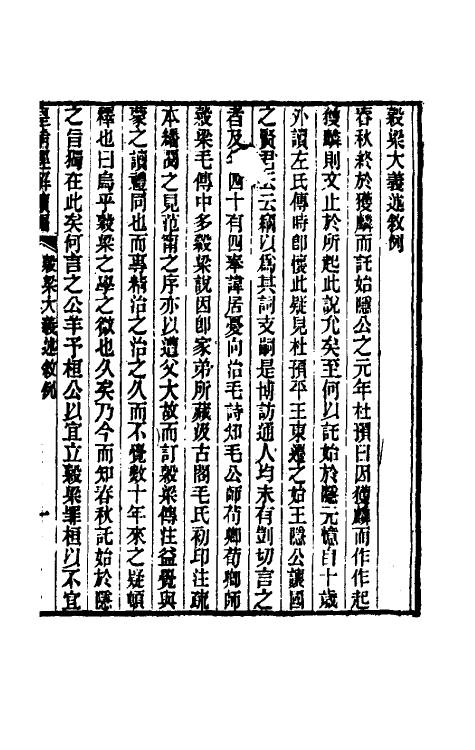 穀梁大義述敘例
春秋終於獲麟而託始隱公之元年杜預曰因獲麟而作作起
獲麟則文止於所起此說允矣至何以託始於隱元憶自十歲
外讀左氏傳時卽懷此疑見杜預平王東遷之始王隱公讓國
之賢君云云竊以為其詞支嗣是博訪通人均未有剴切言之
者及年四十有四奉諱居憂向治毛詩知毛公師荀卿荀卿師
穀梁毛傳中多穀梁說因卽家弟所藏汲古閣毛氏初印注疏
本繙閱之見范甯之序亦以遭父大故而訂穀梁傳注益覺與
蒙之讀禮同也而專精治之治之久而不覺數十年來之疑頓
釋也曰烏乎穀梁之學之微也久矣乃今而知春秋託始於隱
之旨獨在此矣何言之公羊予桓公以宜立穀梁罪桓以不宜
皇清經解續編 穀梁大義述敘例 一